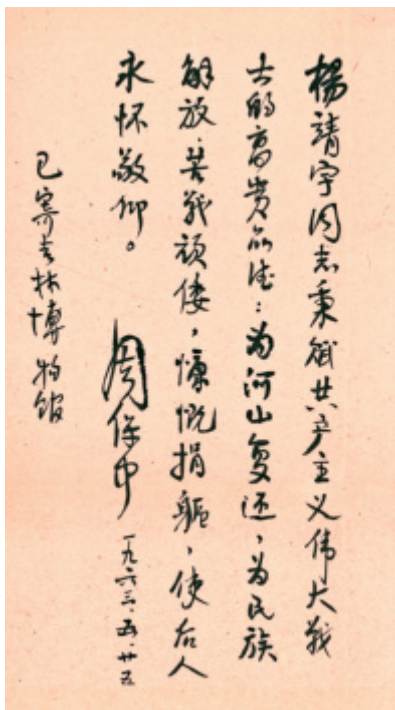 楊靖宇同志秉赋共产主义伟大战
士的高贵品德：为河山复还，为民族
解放，苦战顽倭，慷慨捐躯，使后人
永怀敬仰。
周保中 一九六三.五.廿五
已寄吉林博物馆